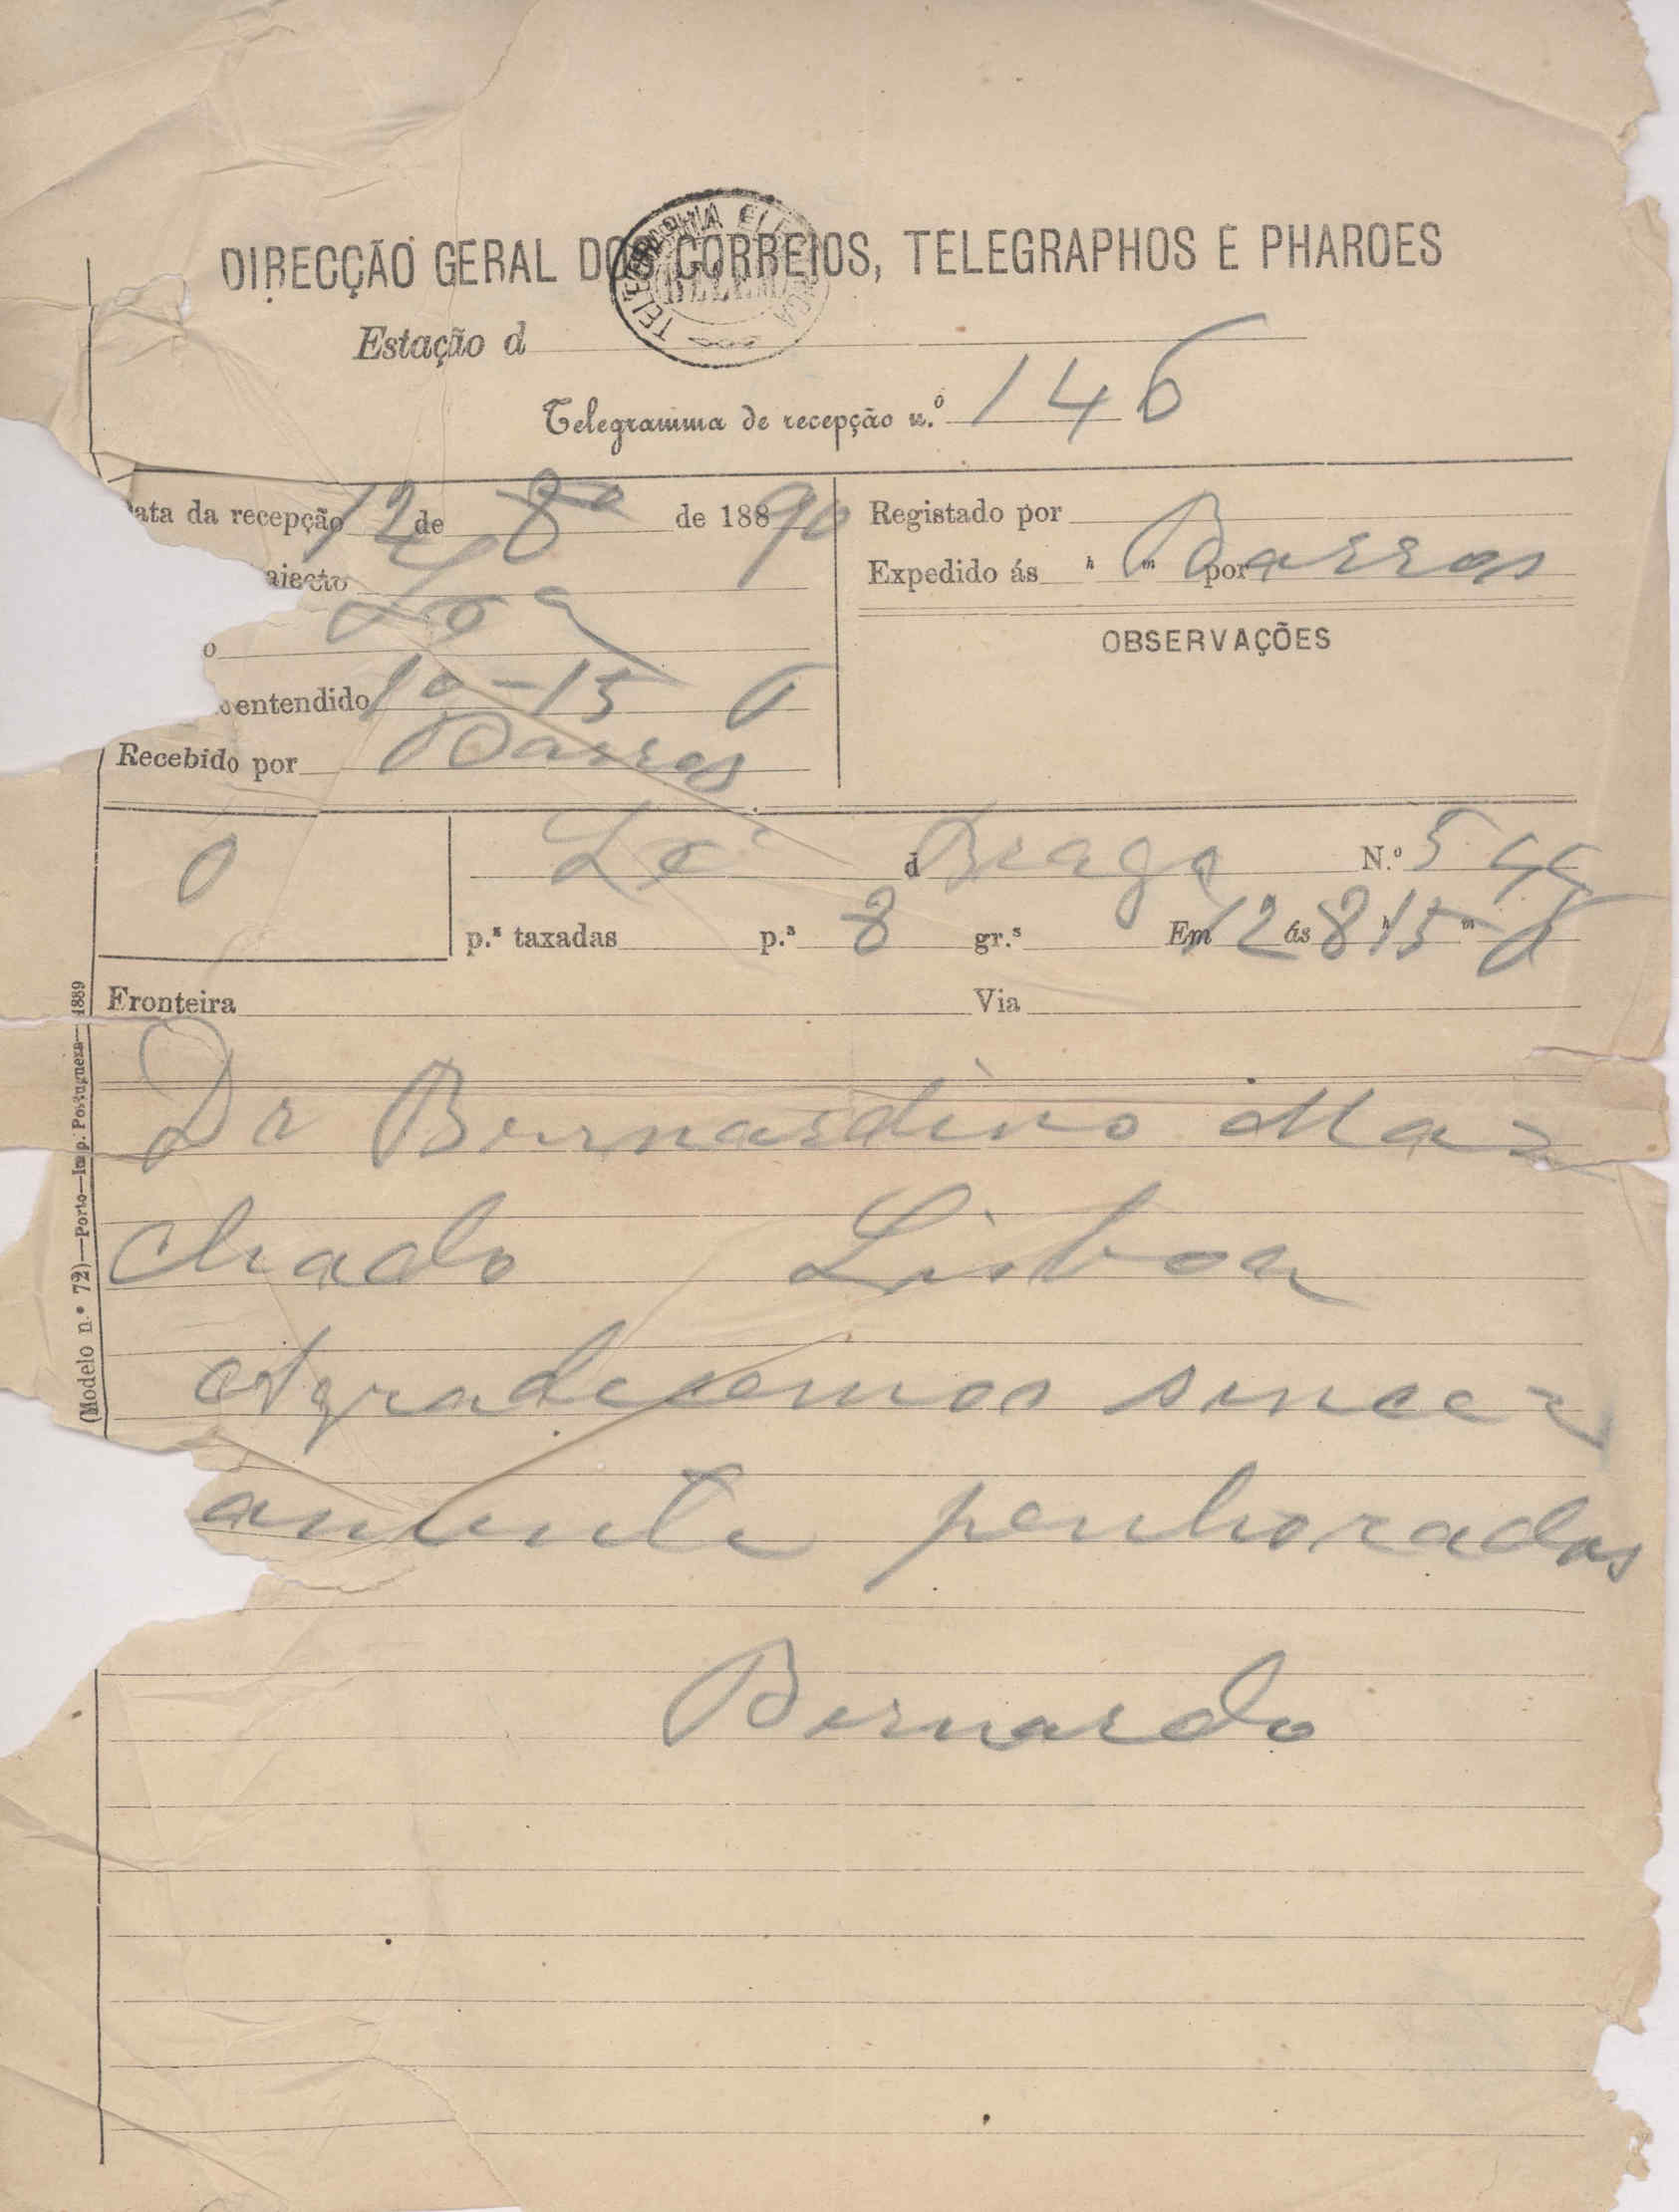 DIRECÇÃO GERAL DOS CORREIOS, TELEGRAPHOS E PHAROES
TELEGRAPHIA ELECTRICA
BELEM
Estação d
Telegramma de recepção n.º 146
ata da recepção 12 de 8º de 188 90
Registado por
Expedido ás h m por Barros
aiecto
OBSERVAÇÕES
o
entendido 10-15
Recebido por Barros
0 Lx d Braga N.º 544
p.s taxadas p.s 8 gr.s Em 12 ás 8 h 15 m
Fronteira Via
Dr Bernardino Ma=
chado Lisboa
Agradecemos sincer
amente penhorados
Bernardo
(Modelo n.º 72)—Porto—Imp. Portugueza—1889